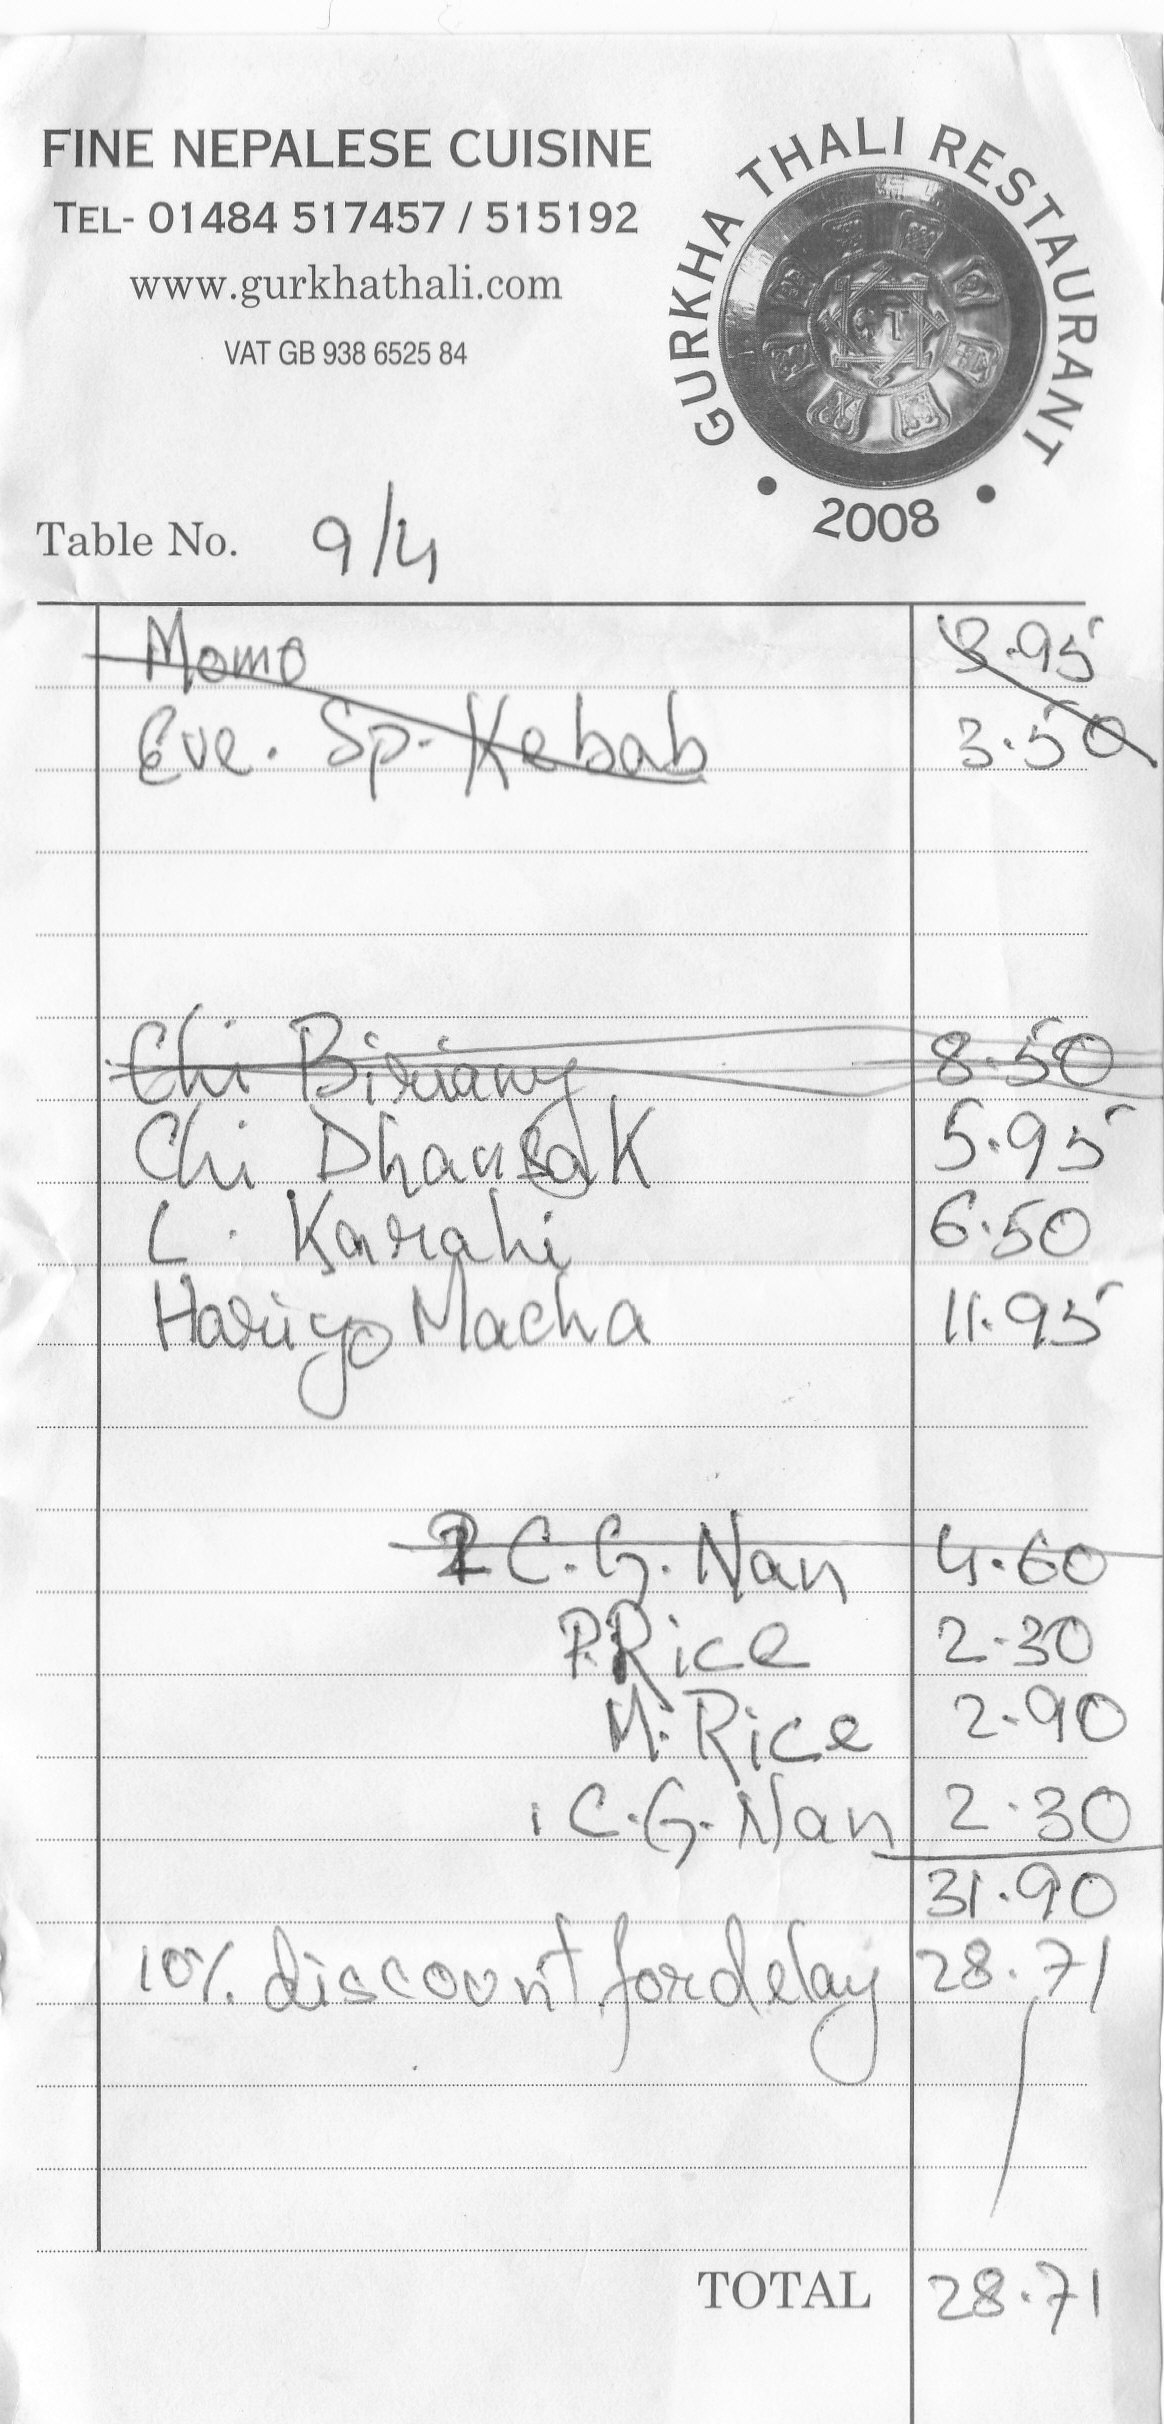 FINE NEPALESE CUISINE
TEL- 01484 517457 / 515192
www.gurkhathali.com
VAT GB 938 6525 84
GURKHA THALI RESTAURANT
GT
• 2008 •
Table No. 9/4
Momo 3.95
Eve. Sp. Kebab 3.50
Chi Biriany 8.50
Chi Dhansak 5.95
L. Karahi 6.50
Hariyo Macha 11.95
2 C.G. Nan 4.60
P.Rice 2.30
M. Rice 2.90
1 C.G. Nan 2.30
31.90
10% discount for delay 28.71
TOTAL 28.71